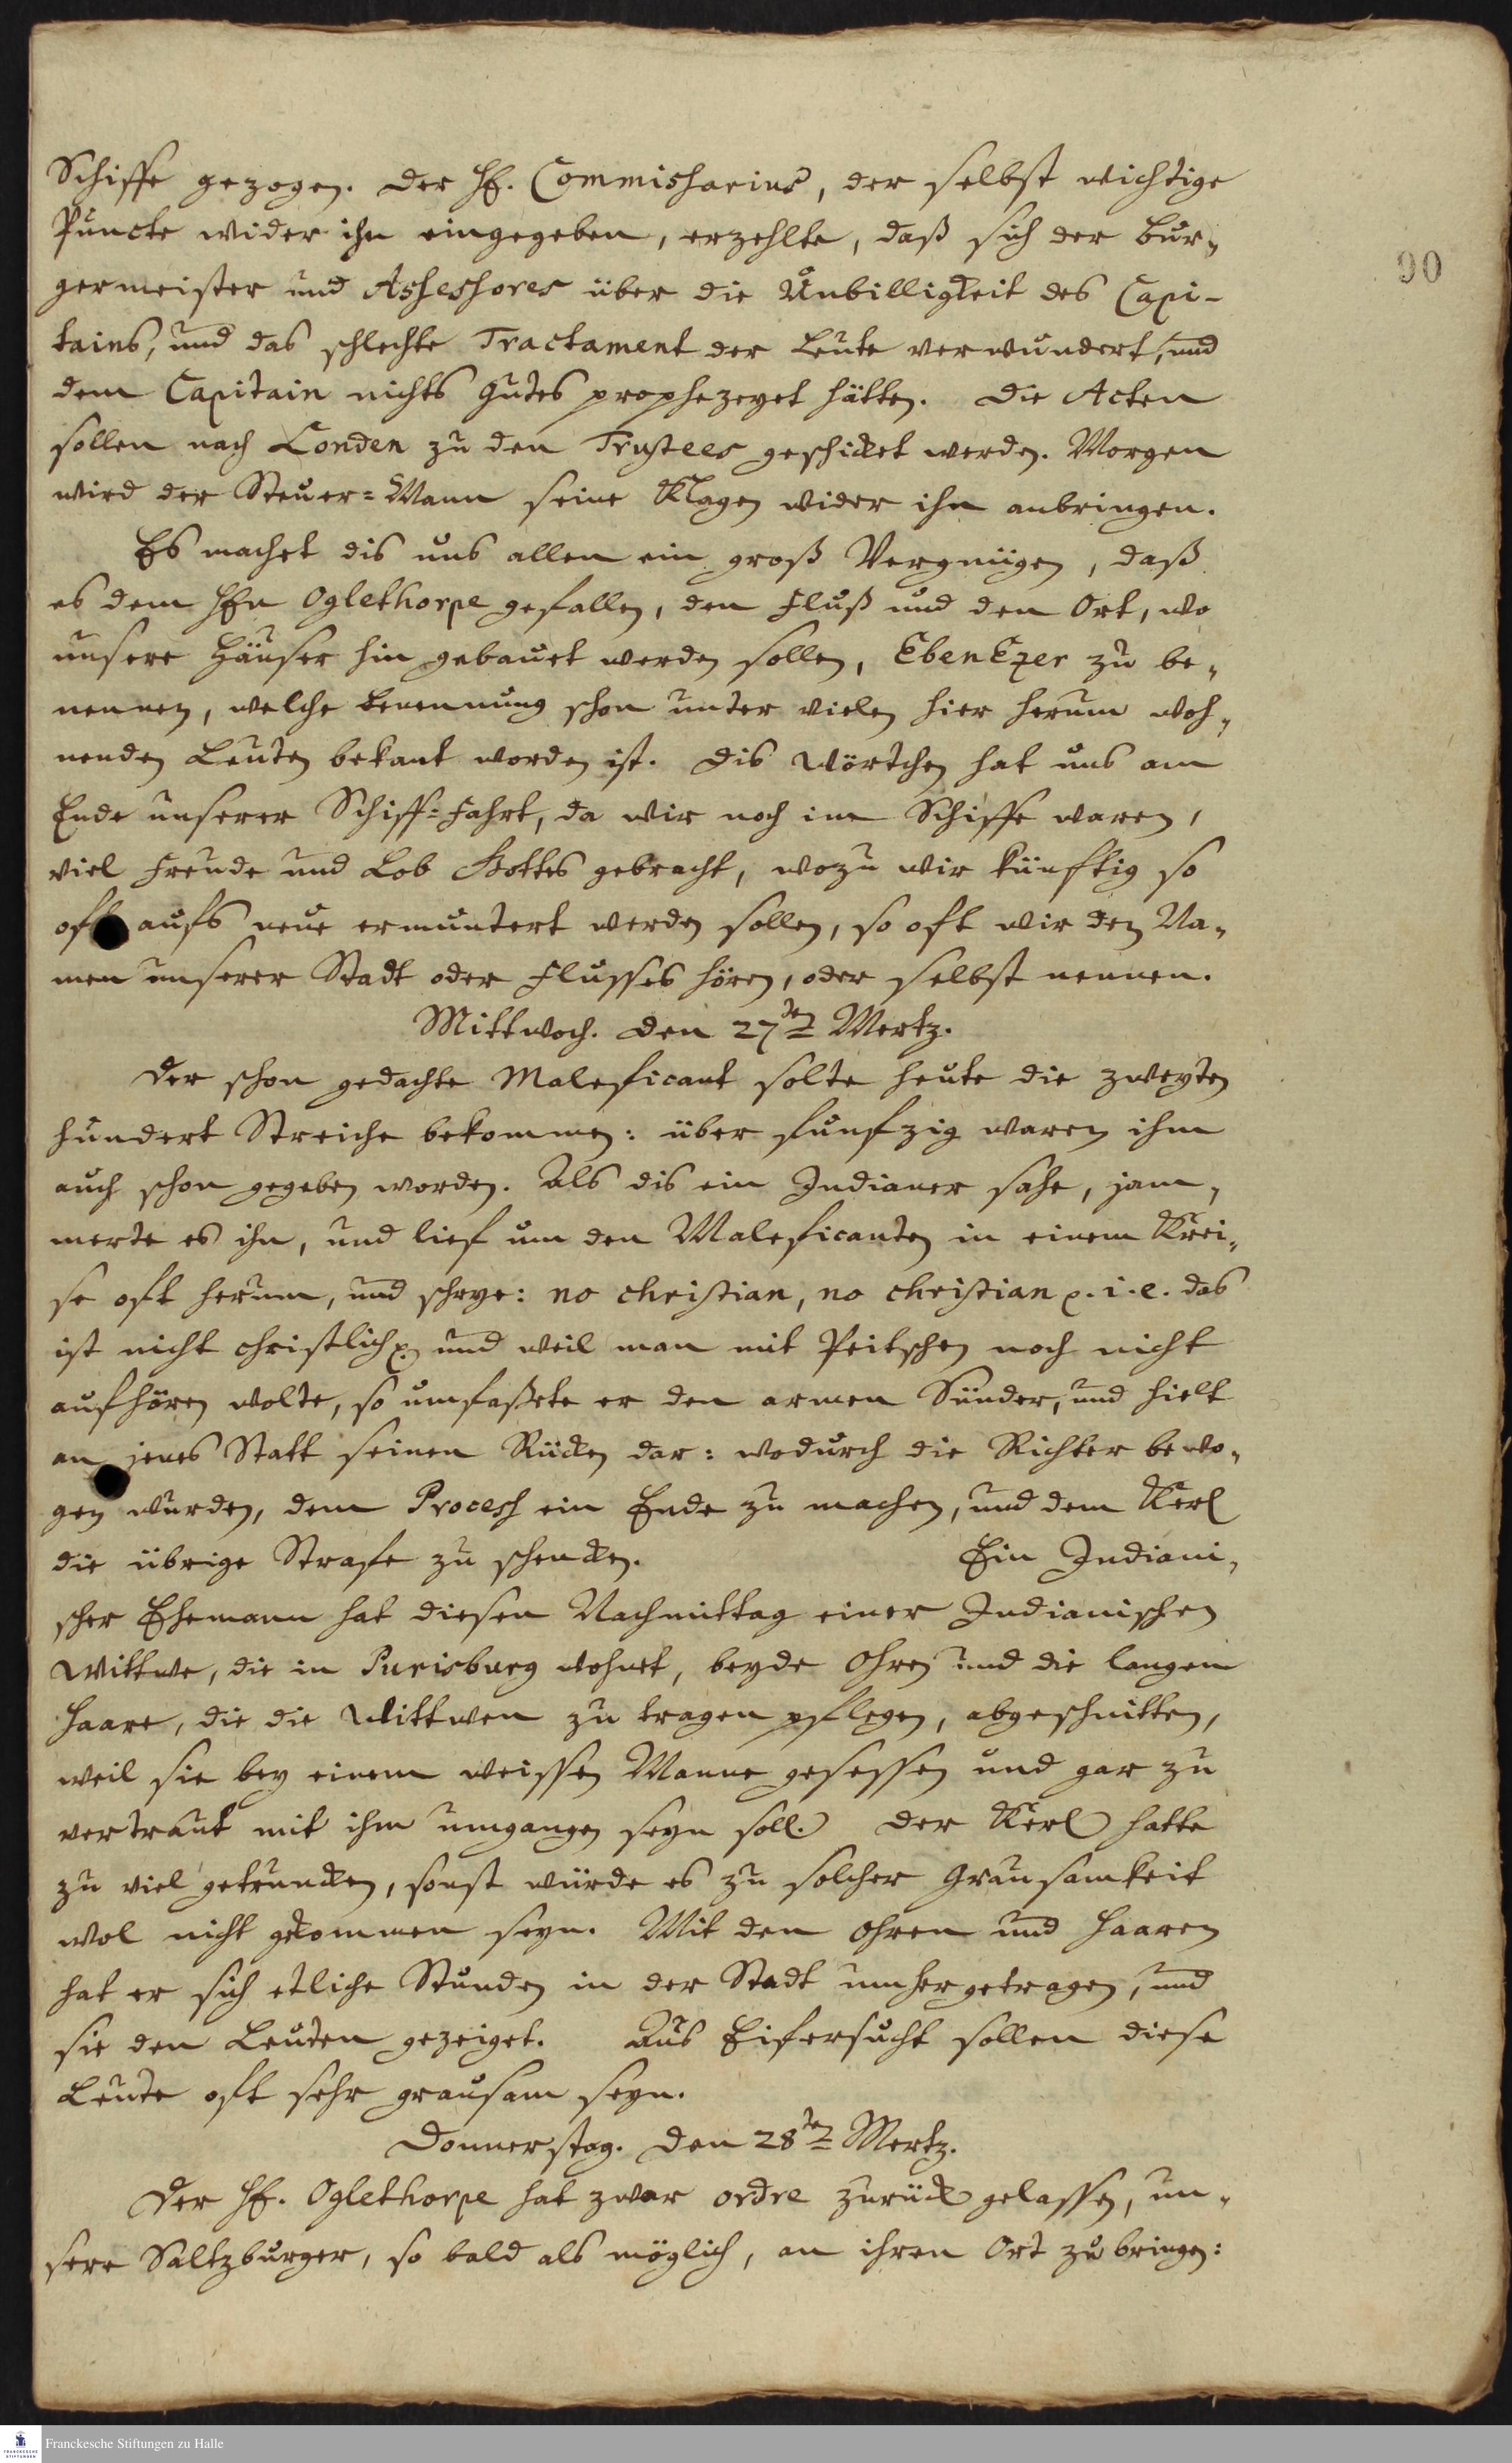 Schiffe gezogen. Der Hr. Commissarius, der selbst wichtige
Puncte wider ihn eingegeben, erzehlte, daß sich der Bur-
germeister und Assessores über die Unbilligkeit des Capi-
tains, und das schlechte Tractament der Leute verwundert, und
dem Capitain nichts gutes prophezeyet hätten. Die Acten
sollen nach Londen zu den Trustees geschicket werden. Morgen
wird der Steuer-Mann seine Klagen wider ihn anbringen.
Es machet dis uns allen ein groß Vergnügen, daß
es dem Hrn Oglethorpe gefallen, den Fluß und den Ort, wo
unsere Häuser hin gebauet werden sollen, EbenEzer zu be-
nennen, welche Benennung schon unter vielen hier herum woh-
nenden Leuten bekant worden ist. Dis Wörtchen hat uns am
Ende unserer Schiff-Fahrt, da wir noch im Schiffe waren,
viel Freude und Lob Gottes gebracht, wozu wir künftig so
oft aufs neue ermuntert werden sollen, so oft wir den Na-
men unserer Stadt oder Flusses hören, oder selbst nennen.
Mittwoch. den 27ten Mertz.
Der schon gedachte Maleficant solte heute die zweyten
hundert Streiche bekommen: über funfzig waren ihm
auch schon gegeben worden. Als dis ein Indianer sahe, jam-
merte es ihn, und lief um den Maleficanten in einem Krei-
se oft herum, und schrye: no christian, no christian p. i. e. das
ist nicht christlich p. und weil man mit Peitschen noch nicht
aufhören wolte, so umfaßete er den armen Sünder, und hielt
an jenes Statt seinen Rücken dar: wodurch die Richter bewo-
gen wurden, dem Process ein Ende zu machen, und dem Kerl
die übrige Strafe zu schencken. Ein Indiani-
scher Ehemann hat diesen Nachmittag einer Indianischen
Wittwe, die in Purisburg wohnet, beyde Ohren und die langen
Haare, die die Wittwen zu tragen pflegen, abgeschnitten,
weil sie bey einem weissen Manne gesessen und gar zu
vertraut mit ihm umgangen seyn soll. Der Kerl hatte
zu viel getruncken, sonst würde es zu solcher Grausamkeit
wol nicht gekommen seyn. Mit den Ohren und Haaren
hat er sich etliche Stunden in der Stadt umher getragen, und
sie den Leuten gezeiget. Aus Eifersucht sollen diese
Leute oft sehr grausam seyn.
Donnerstag. den 28ten Mertz.
Der Hr. Oglethorpe hat zwar ordre zurück gelassen, un-
sere Saltzburger, so bald als möglich, an ihren Ort zu bringen:
90
Franckesche Stiftungen zu Halle